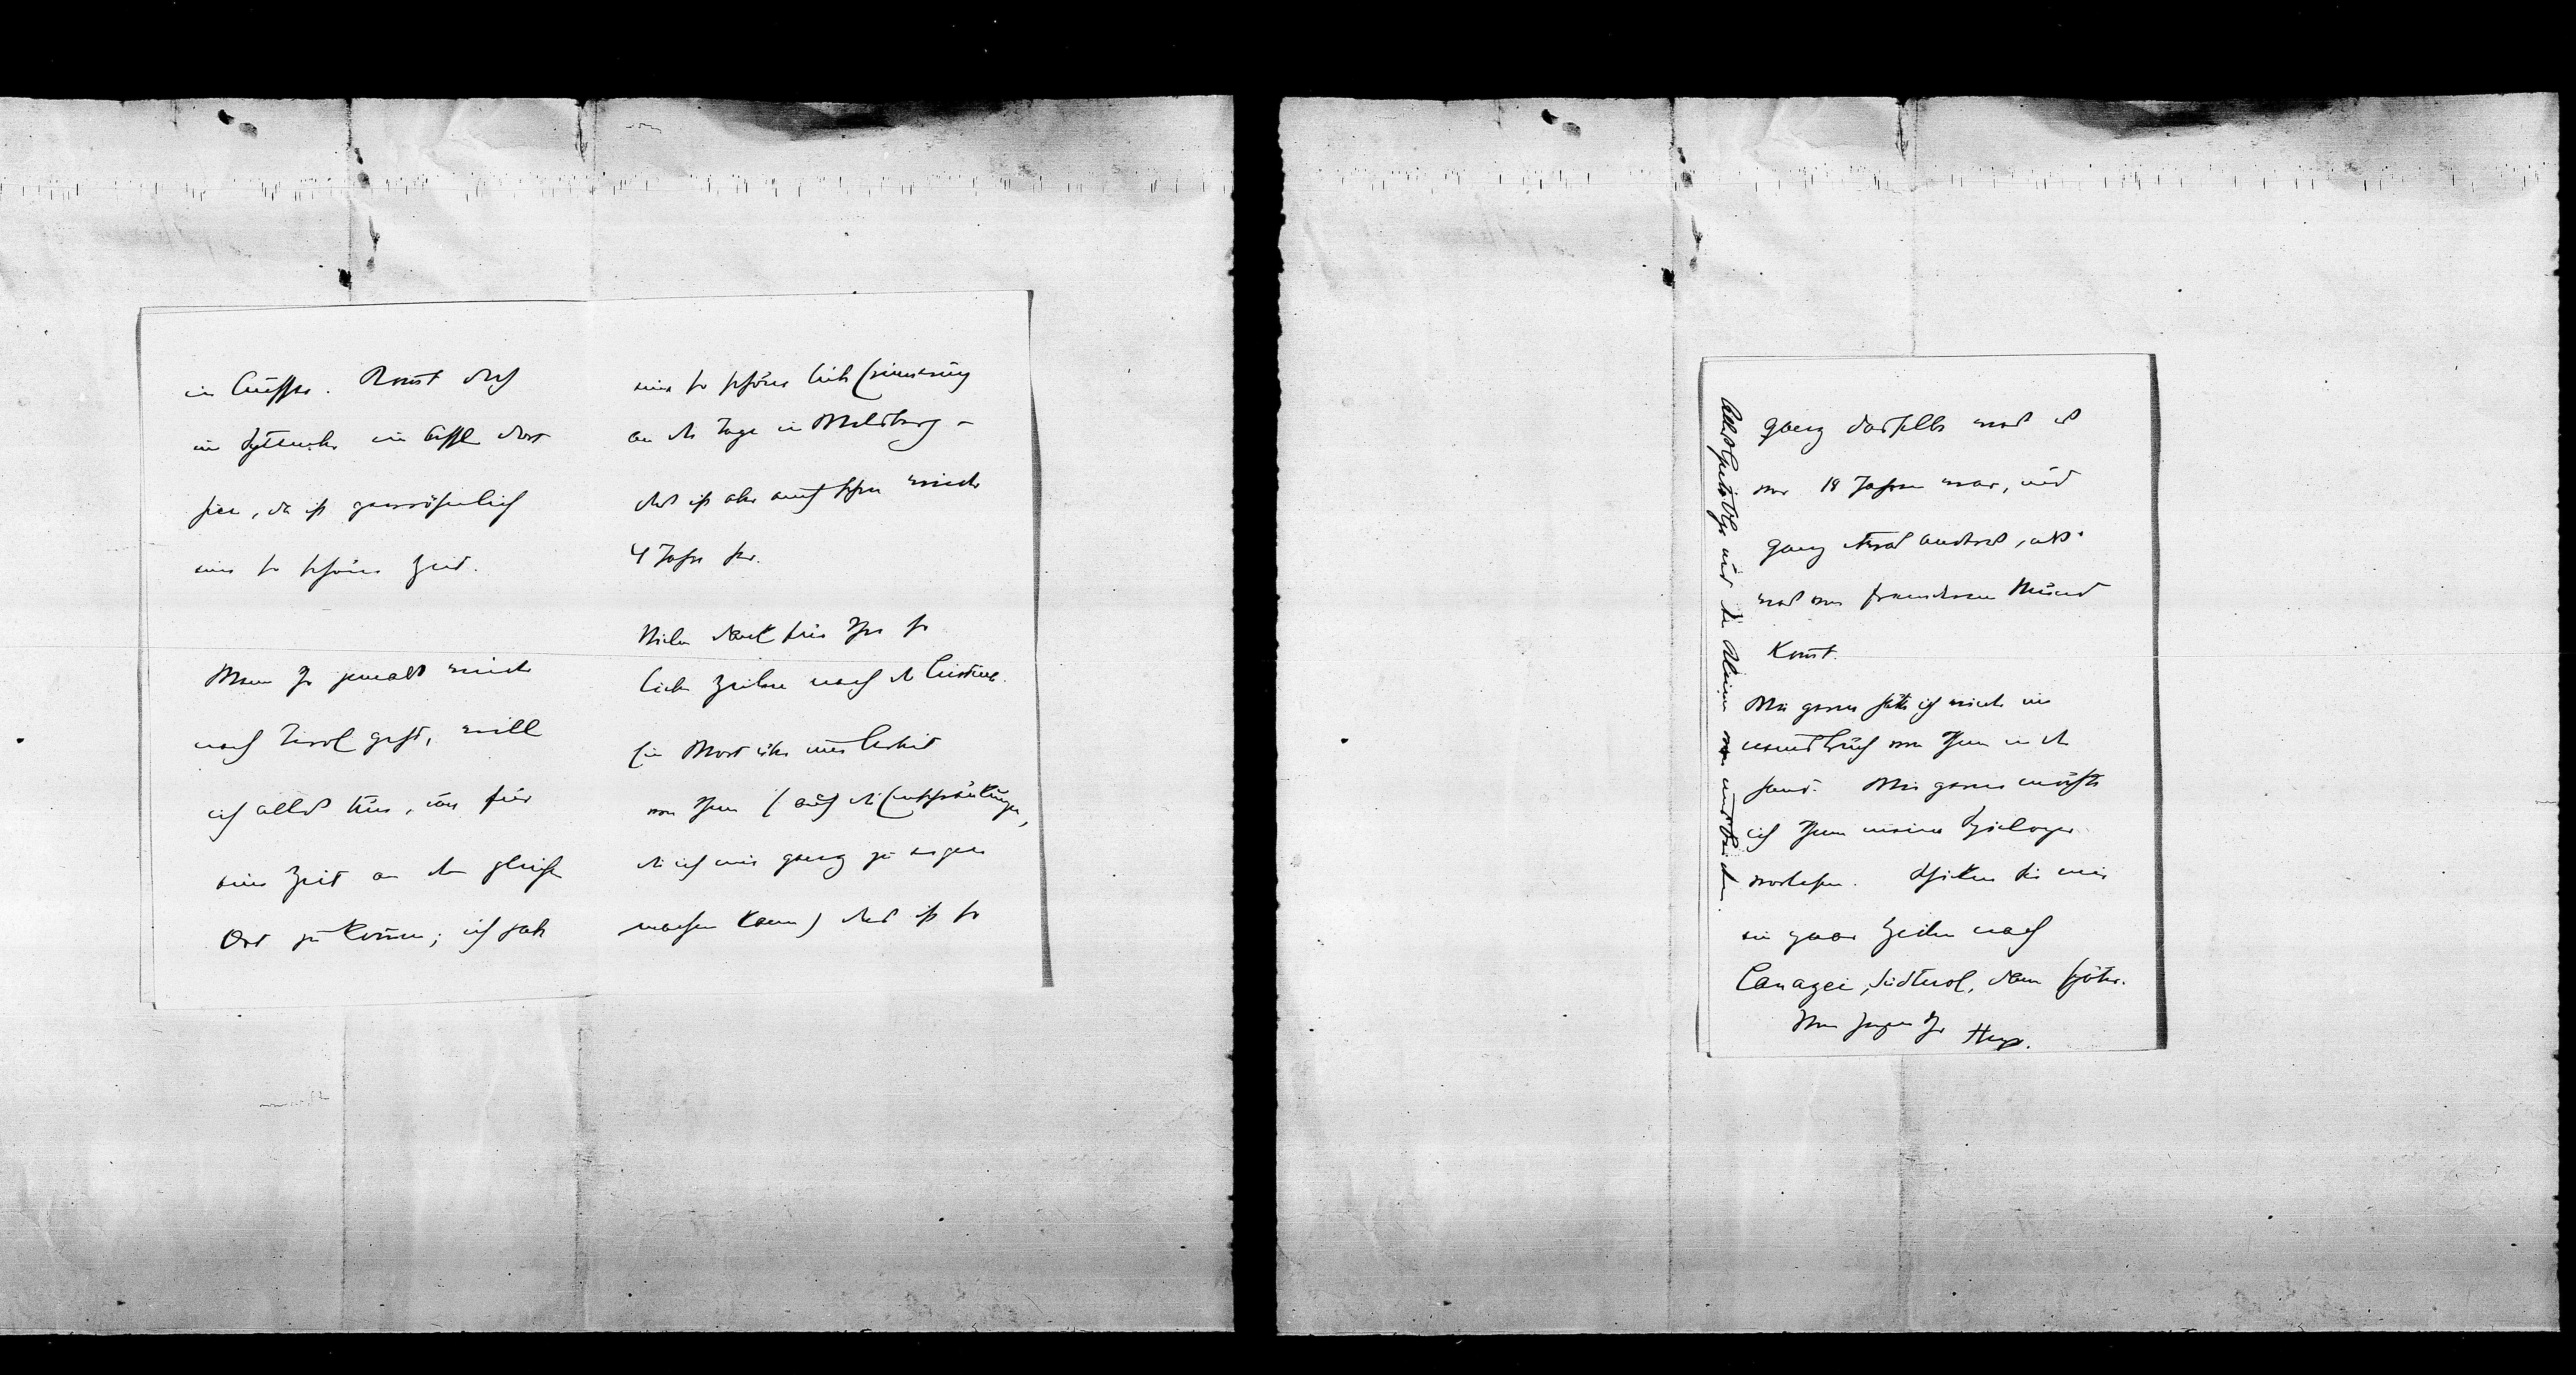 in Aussee. Kommt doch
im September in Aussee dort
hier, da ist gewöhnlich
eine so schöne Zeit.
Wenn Ihr jemals wieder
nach Tirol geht, will
ich alles tun, um für
eine Zeit an den gleichen
Ort zu kommen; ich habe
eine so schöne liebe Erinnerung
an die Tage in Welsberg –
das ist aber auch schon wieder
4 Jahre her.
Vielen Dank für Ihre so
lieben Zeilen nach der
Ein Wort über eine Arbeit
von Ihnen (auch die Einschränkungen,
die ich mir ganz zu eigen
machen kann) das ist so
ganz dasselbe was es
vor 18 Jahren war, und
ganz etwas anderes, als
was von fremderem Mund
kommt.
Wie gerne hätte ich wieder ein
von Ihnen in der
Hand. Wie gerne möchte
ich Ihnen meine
vorlesen. Schicken Sie mir
ein paar Zeilen nach
Canazei, Südtirol, dann später.
Von Herzen Ihr Hugo.
Alles Gute Olga und den Kleinen von uns beiden.